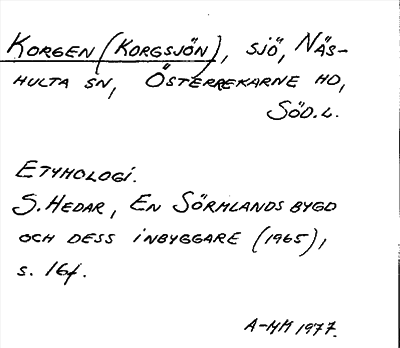 KORGEN (KORGSJÖN), SJÖ, NÄS-
HULTA SN, ÖSTERREKARNE HD,
SÖD.L.
ETYMOLOGI.
S. HEDAR, EN SÖRMLANDSBYGD
OCH DESS INBYGGARE (1965),
S. 16f.
A-MM 1977.